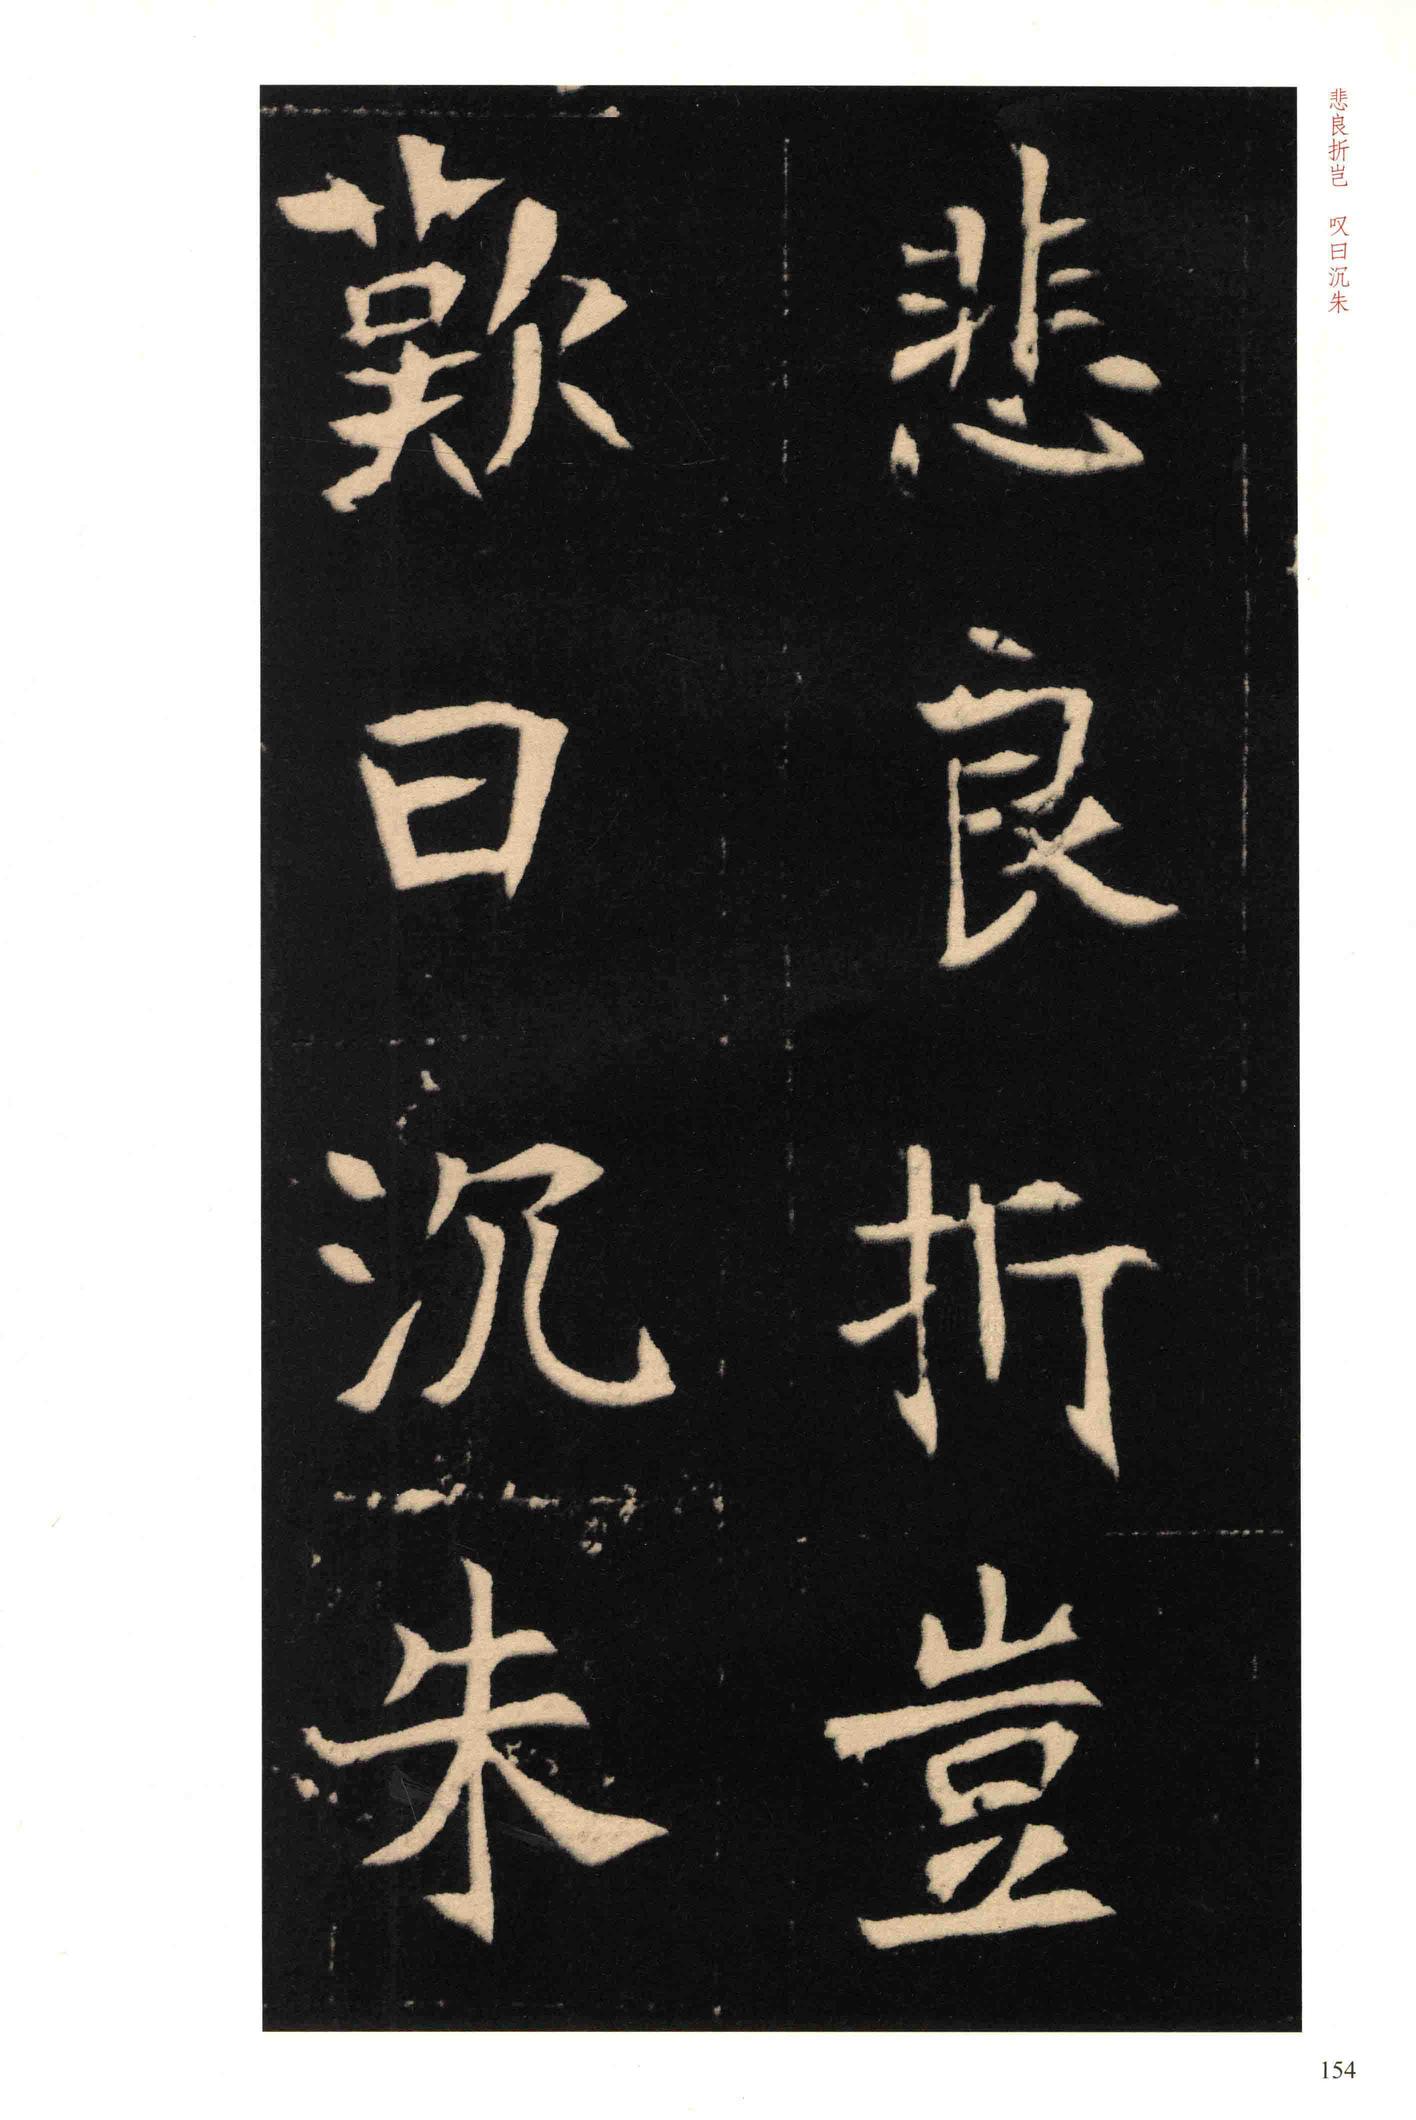 悲良折岂 叹曰沉朱
悲良折豈
歎曰沉朱
154